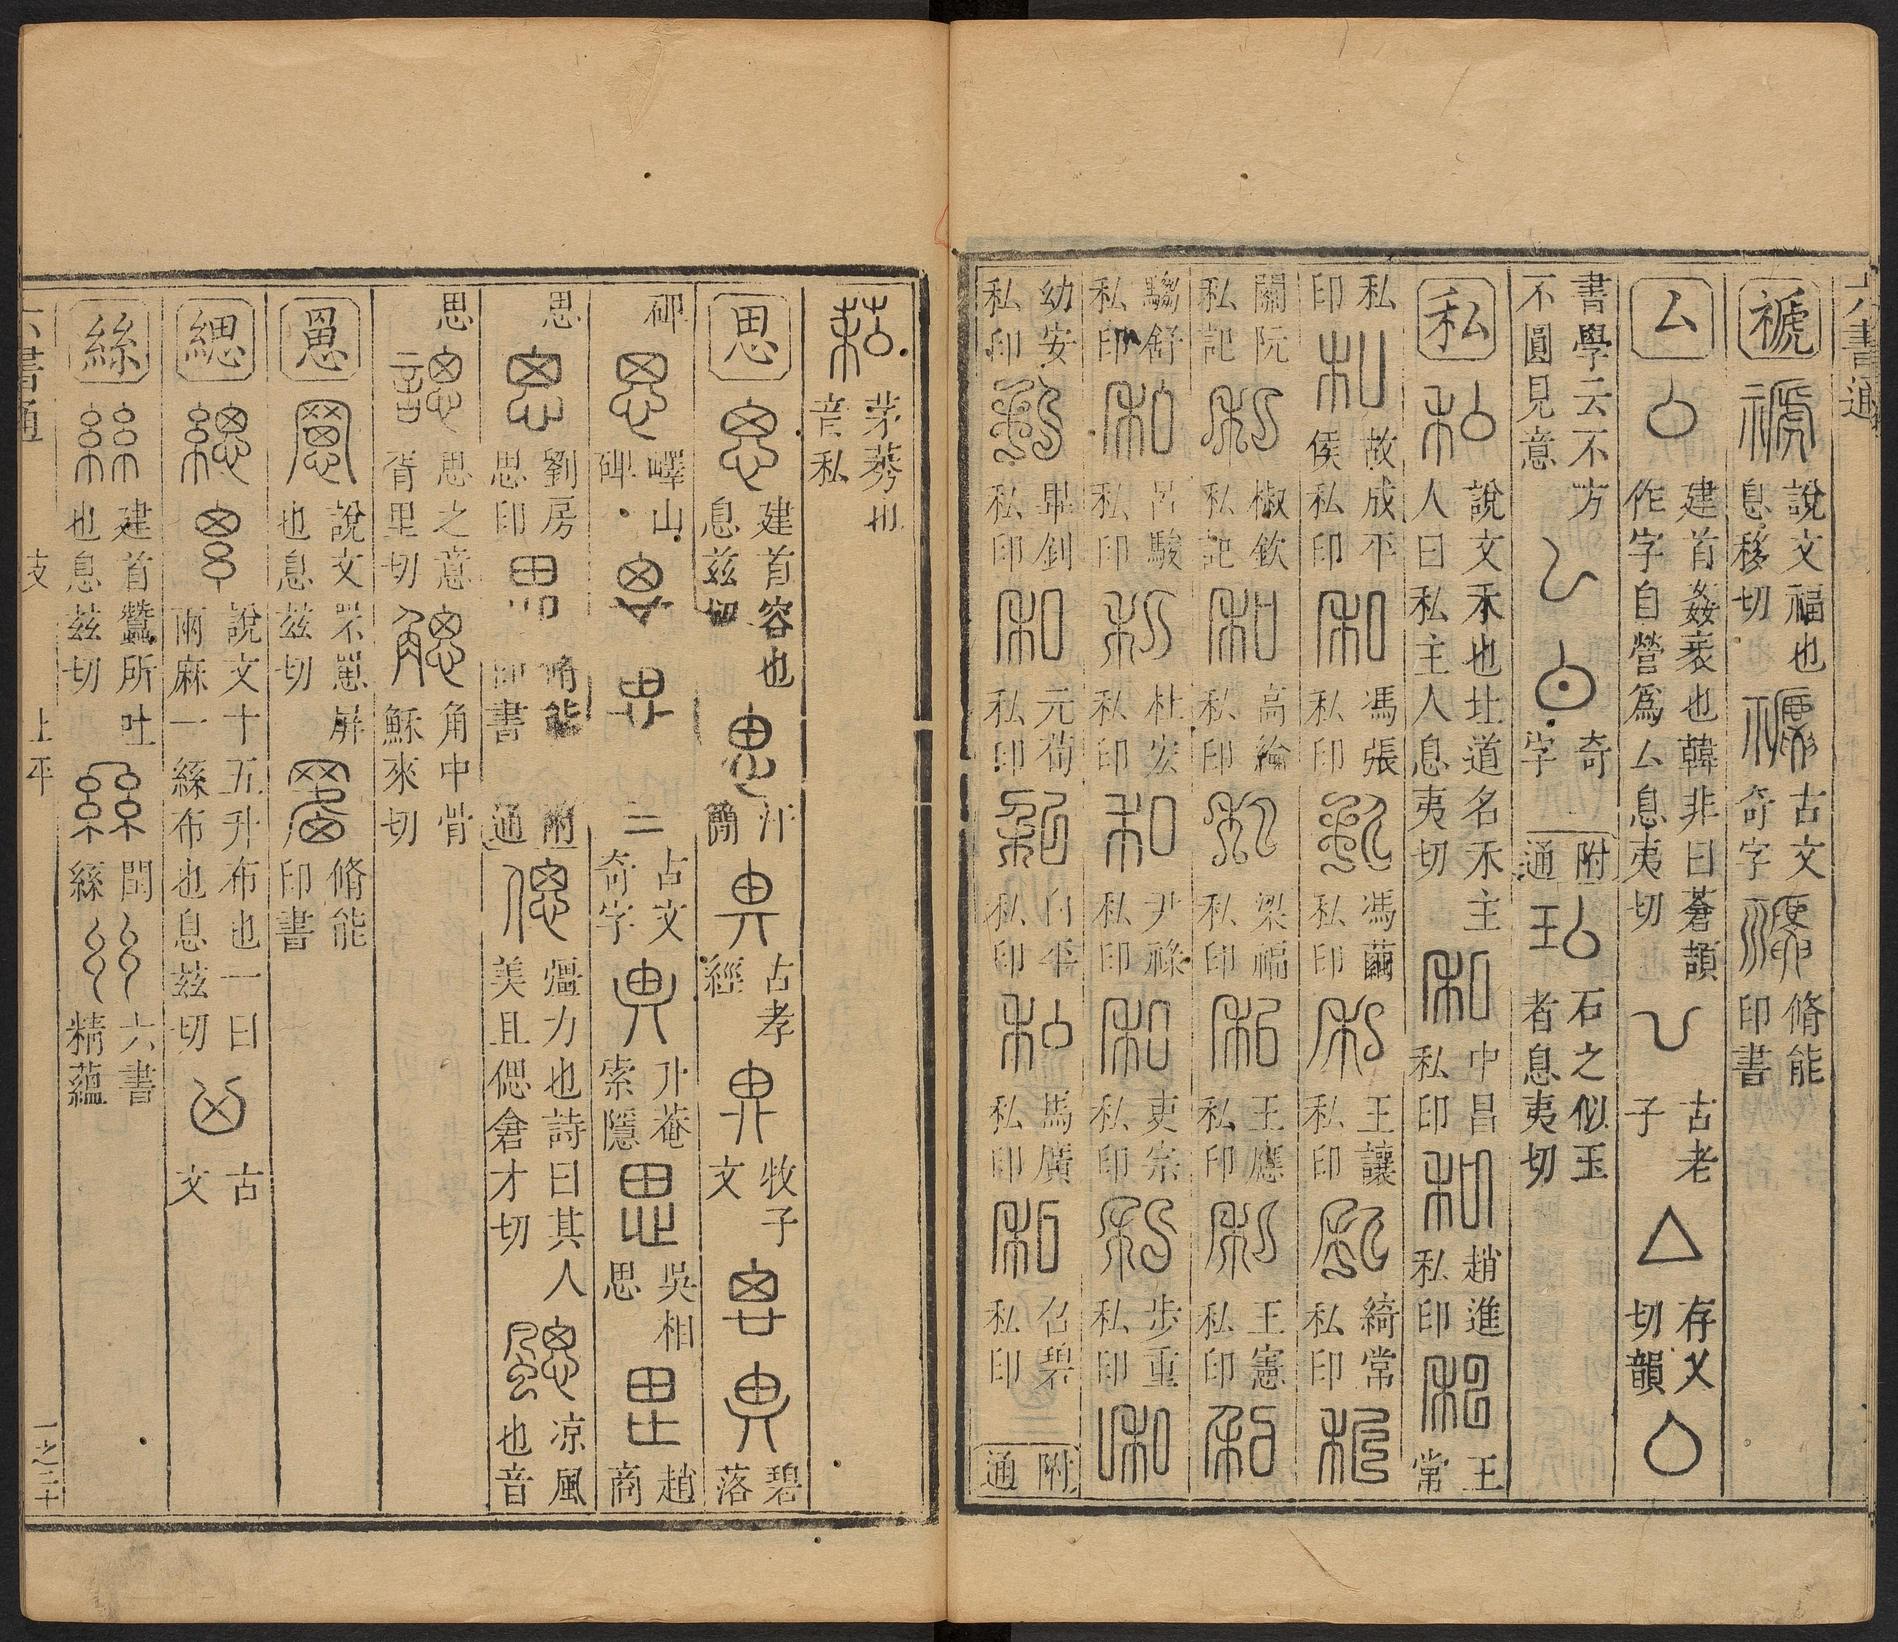 六書通
禠 說文福也
息移切
古文
奇字
脩能
印書
厶 建首姦衺也韓非曰蒼頡
作字自營爲厶息夷切
古老
子
存乂
切韻
書學云不方
不圓見意
奇
字
附
通
石之似玉
者息夷切
私 說文禾也北道名禾主
人曰私主人息夷切
中昌
私印
趙進
私印
王
常
私
印
故成平
侯私印
馮張
私印
馮繭
私印
王讓
私印
綺常
私印
關阮
私記
椒欽
私記
高綸
私印
梁福
私印
王應
私印
王憲
私印
騶舒
私印
呂駿
私印
杜宏
私印
尹祿
私印
吏宗
私印
步重
私印
幼安
私印
畢釗
私印
元荀
私印
白平
私印
馬廣
私印
召碧
私印
附
通
茅莠也
音私
思 建首容也
息兹切
汗
簡
古孝
經
牧子
文
碧
落
碑
嶧山
碑
古文
奇字
升菴
索隱
吳相
思
趙
商
思
劉房
思印
脩能
印書
附
通
彊力也詩曰其人
美且偲倉才切
凉風
也音
思
思之意
胥里切
角中骨
穌來切
罳 說文罘罳屏
也息兹切
脩能
印書
緦 說文十五升布也一曰
兩麻一絲布也息兹切
古
文
絲 建首蠶所吐
也息兹切
同
絲
六書
精蘊
六書通
支
上平
一之三十